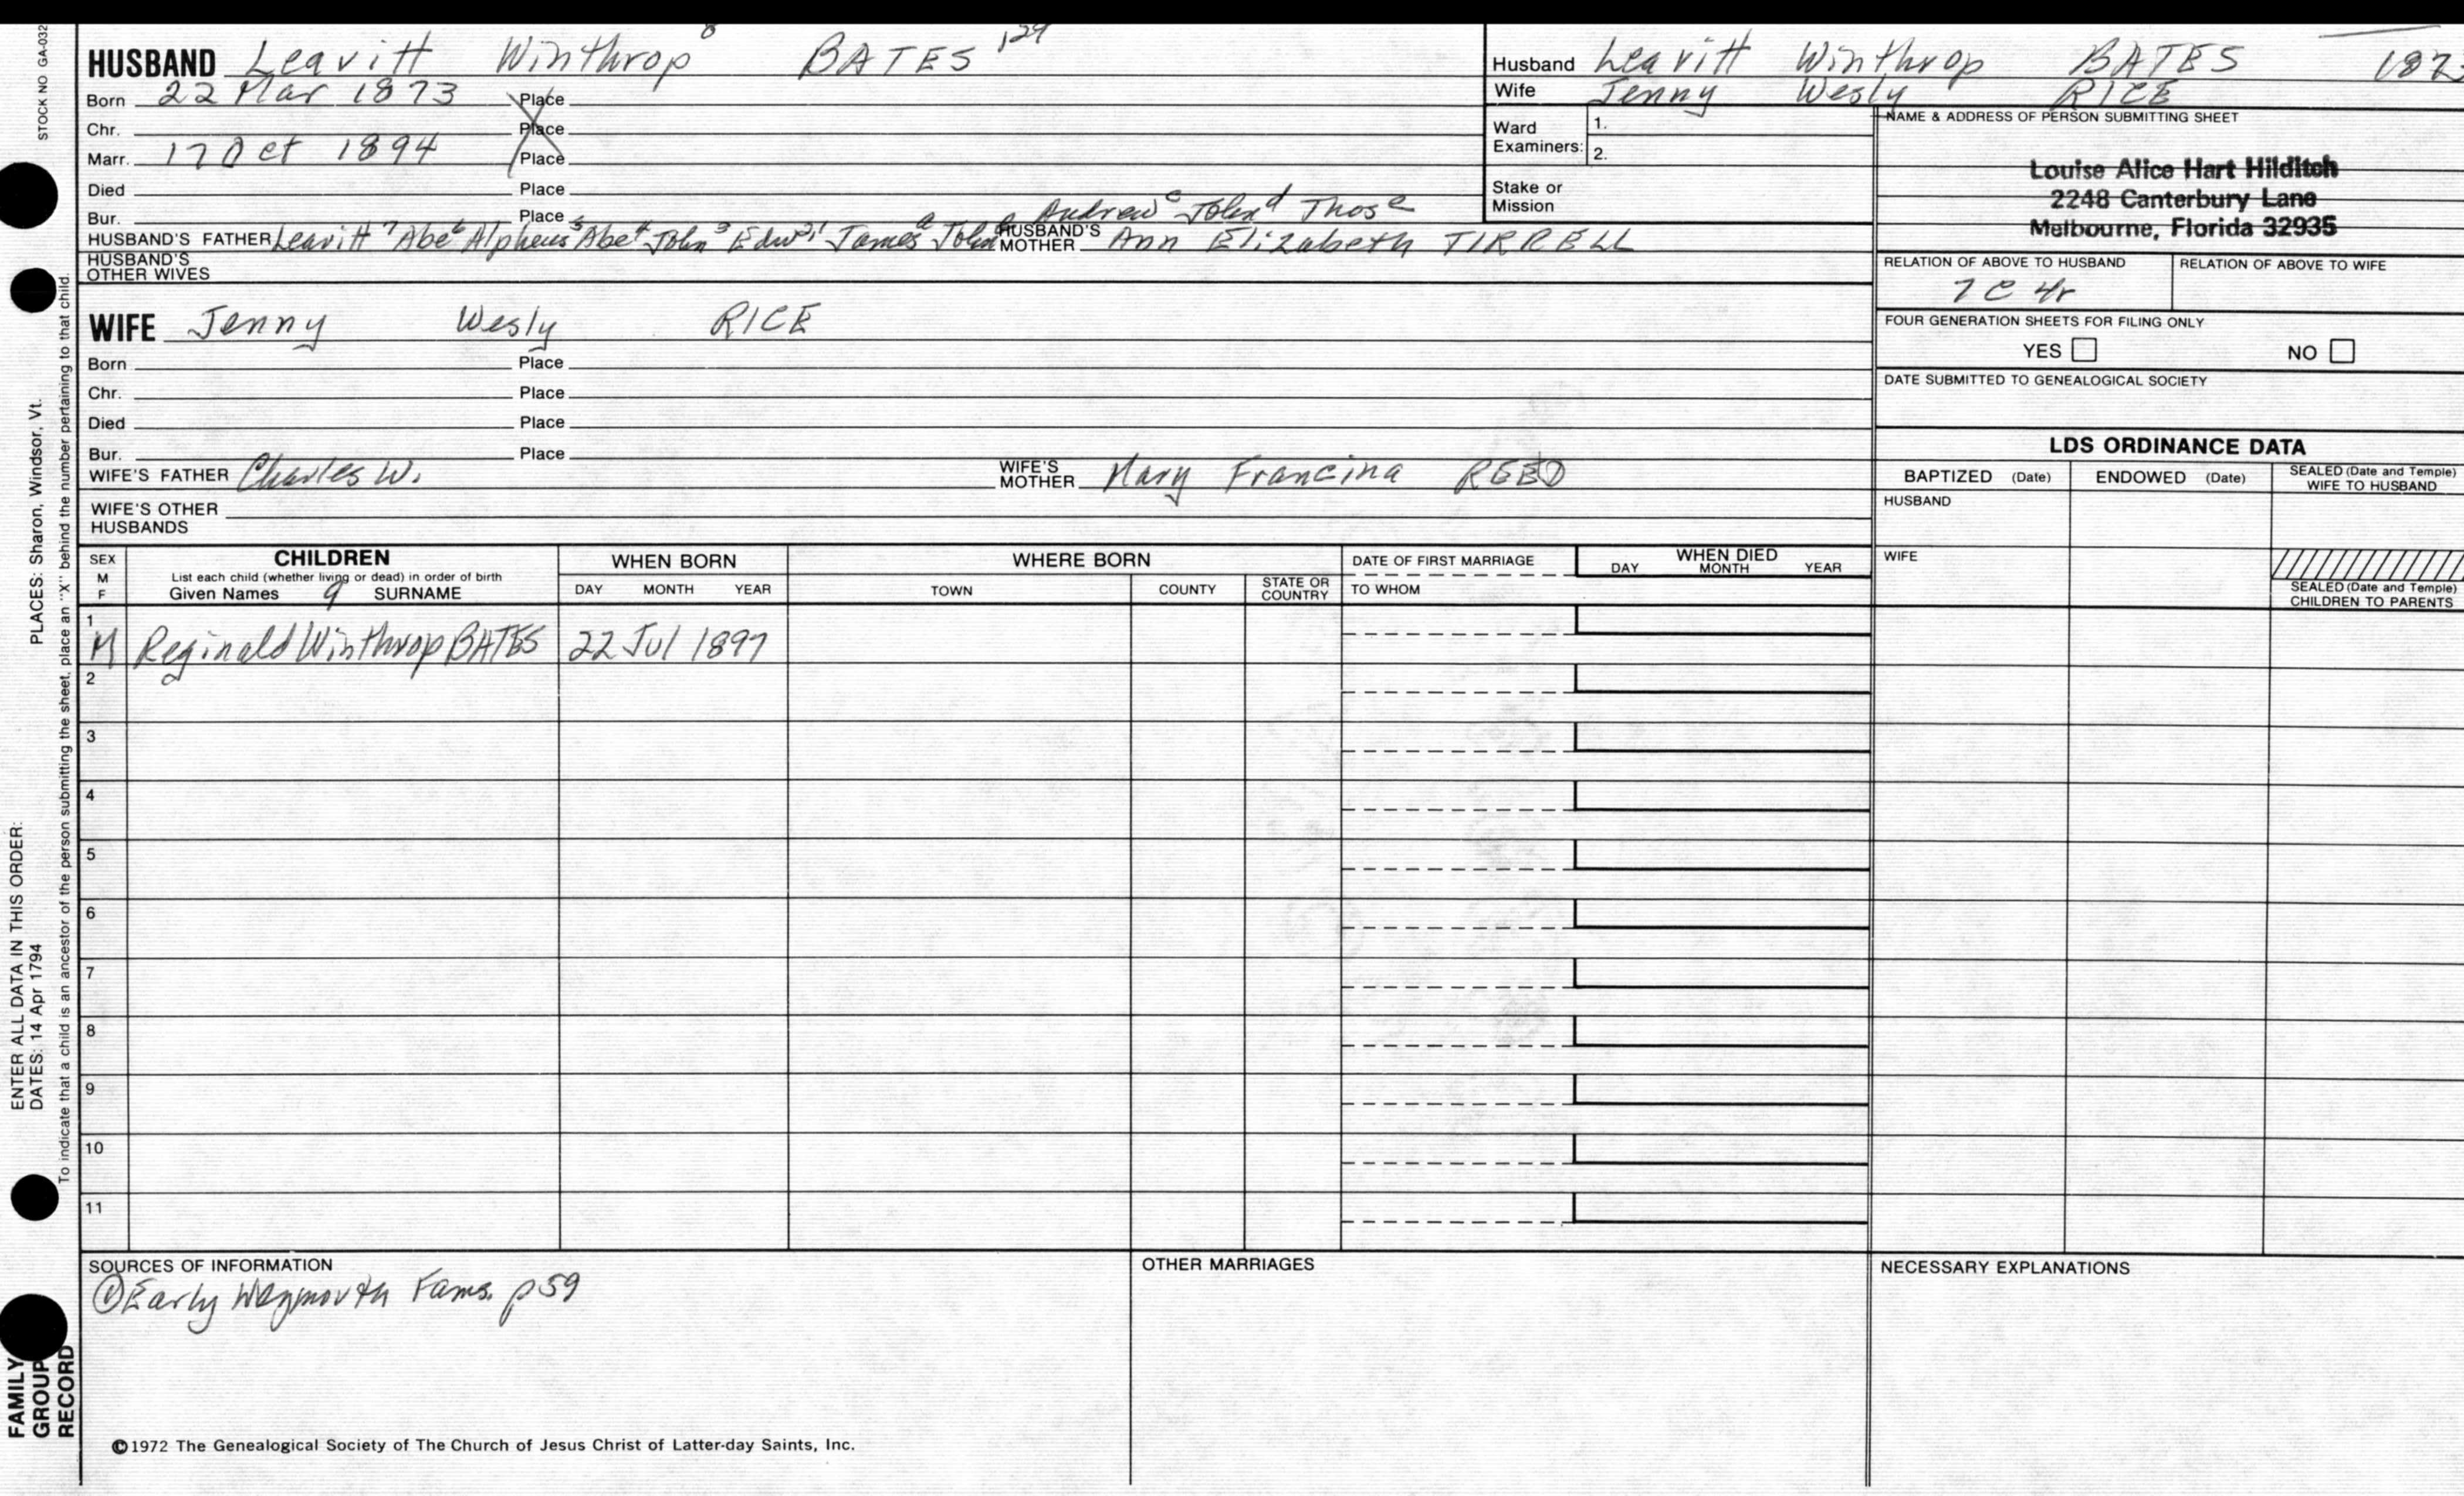 STOCK NO GA-032
HUSBAND Leavitt Winthrop 8 BATES 124
Born 22 Mar 1873 Place
Chr. Place
Marr. 17 Oct 1894 Place
Died Place
Bur. Place
Andrew c John d Thos e
HUSBAND'S FATHER Leavitt 7 Abe 6 Alpheus 5 Abe 4 John 3 Edw 2,1 James a John HUSBAND'S MOTHER Ann Elizabeth TIRRELL
HUSBAND'S OTHER WIVES
WIFE Jenny Wesly RICE
Born Place
Chr. Place
Died Place
Bur. Place
WIFE'S FATHER Charles W. WIFE'S MOTHER Mary Francina REED
WIFE'S OTHER HUSBANDS
Husband Leavitt Winthrop BATES 1873
Wife Jenny Wesly RICE
Ward Examiners: 1.
2.
Stake or Mission
NAME & ADDRESS OF PERSON SUBMITTING SHEET
Louise Alice Hart Hilditch
2248 Canterbury Lane
Melbourne, Florida 32935
RELATION OF ABOVE TO HUSBAND RELATION OF ABOVE TO WIFE
7C 4r
FOUR GENERATION SHEETS FOR FILING ONLY
YES NO
DATE SUBMITTED TO GENEALOGICAL SOCIETY
LDS ORDINANCE DATA
BAPTIZED (Date) ENDOWED (Date) SEALED (Date and Temple) WIFE TO HUSBAND
HUSBAND
WIFE
SEALED (Date and Temple) CHILDREN TO PARENTS
SEX M F
CHILDREN
List each child (whether living or dead) in order of birth
Given Names 9 SURNAME
WHEN BORN
DAY MONTH YEAR
WHERE BORN
TOWN COUNTY STATE OR COUNTRY
DATE OF FIRST MARRIAGE
TO WHOM
WHEN DIED
DAY MONTH YEAR
1
M Reginald Winthrop BATES 22 Jul 1897
2
3
4
5
6
7
8
9
10
11
SOURCES OF INFORMATION
① Early Weymouth Fams. p 59
OTHER MARRIAGES
NECESSARY EXPLANATIONS
©1972 The Genealogical Society of The Church of Jesus Christ of Latter-day Saints, Inc.
ENTER ALL DATA IN THIS ORDER:
DATES: 14 Apr 1794 PLACES: Sharon, Windsor, Vt.
To indicate that a child is an ancestor of the person submitting the sheet, place an "X" behind the number pertaining to that child.
FAMILY
GROUP
RECORD